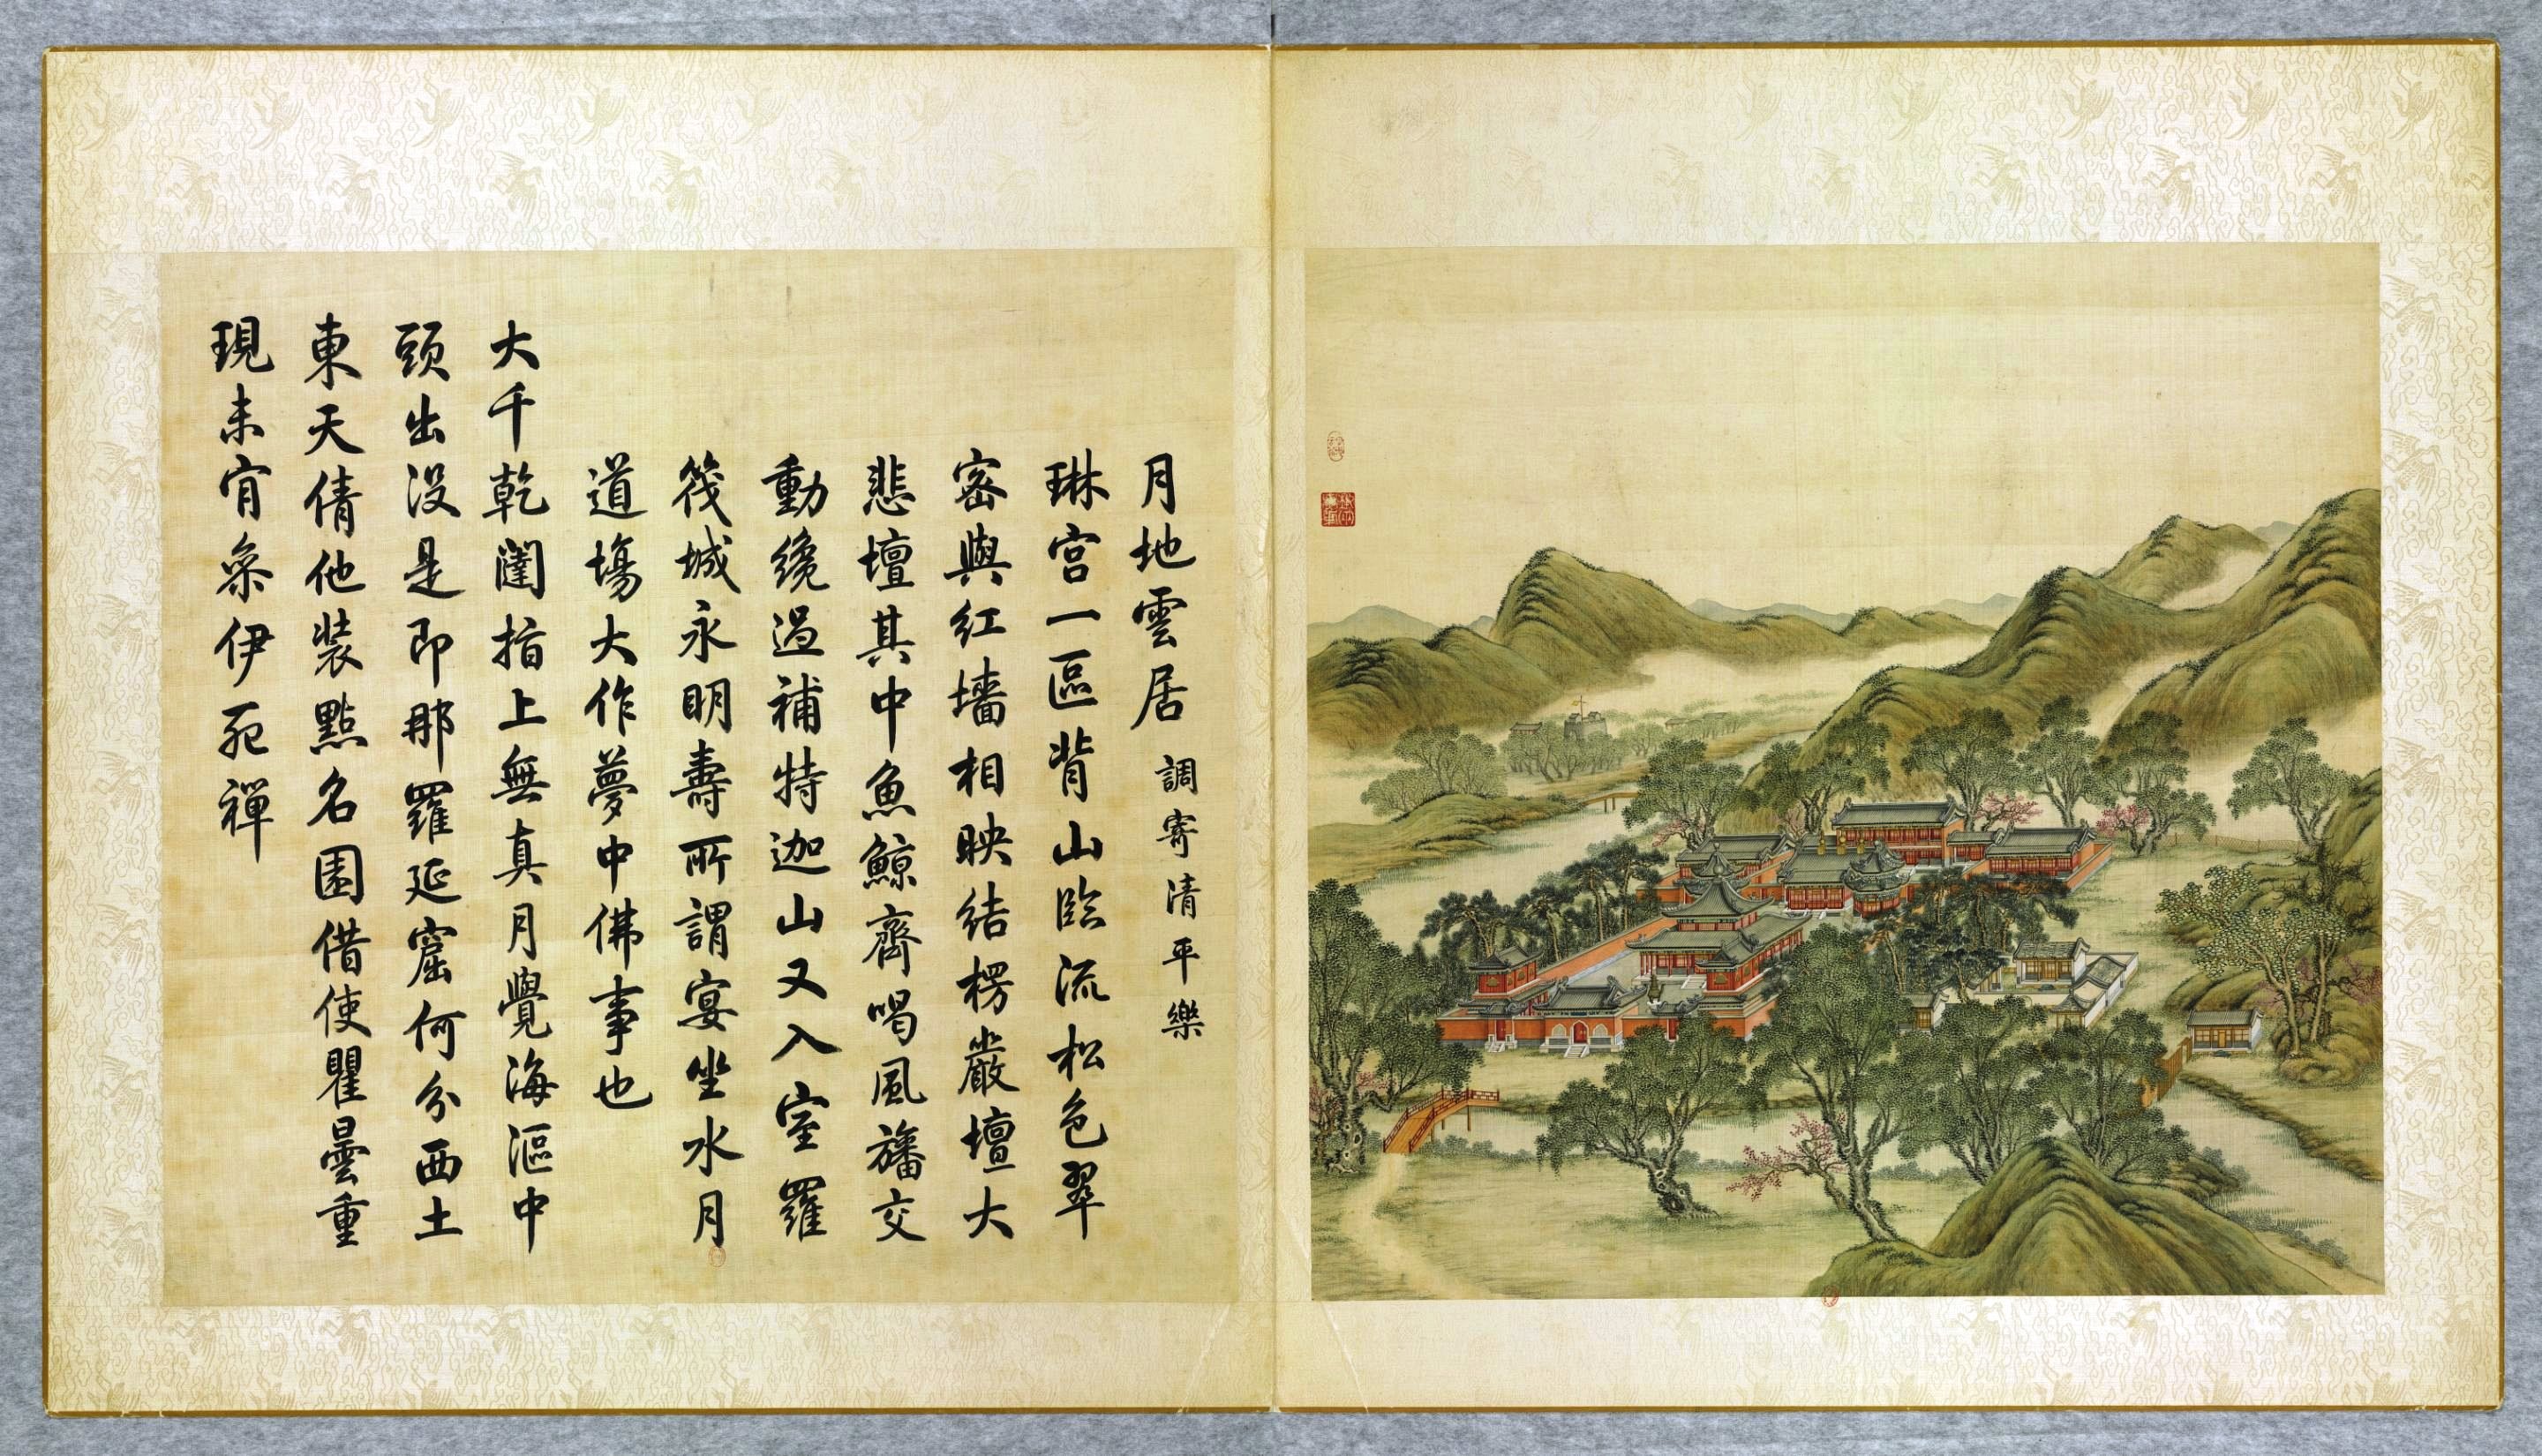 月地雲居 調寄清平樂
琳宫一區背山臨流松色翠
密與紅墻相映結楞嚴壇大
悲壇其中魚鯨齊喝風旛交
動纔過補特迦山又入室羅
筏城永明壽所謂宴坐水月
道場大作夢中佛事也
大千乾闥指上無真月覺海漚中
頭出没是即那羅延窟何分西土
東天倩他裝點名園借使瞿曇重
現未肎參伊死禪